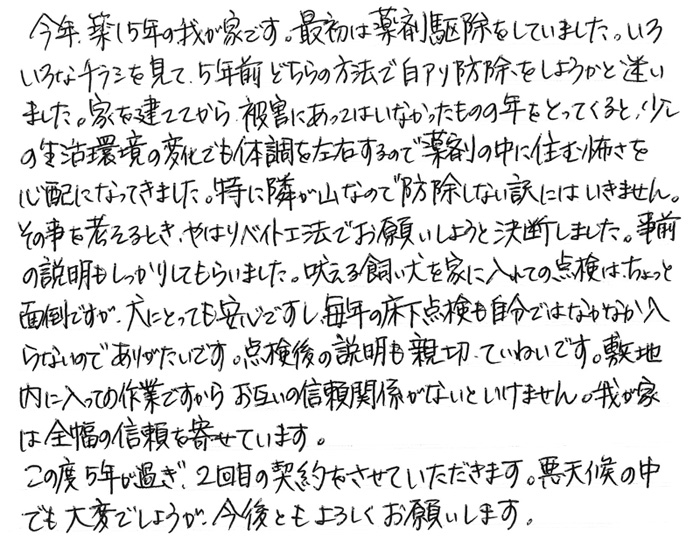 今年、築15年の我が家です。最初は薬剤駆除をしていました。いろ
いろなチラシを見て、5年前どちらの方法で白アリ防除をしようかと迷い
ました。家を建ててから、被害にあってはいなかったものの年をとってくると、少し
の生活環境の変化でも体調を左右するので薬剤の中に住む怖さを
心配になってきました。特に隣が山なので防除しない訳にはいきません。
その事を考えるとき、やはりベイト工法でお願いしようと決断しました。事前
の説明もしっかりしてもらいました。吠える飼い犬を家に入れての点検は、ちょっと
面倒ですが、犬にとっても安心ですし、毎年の床下点検も自分ではなかなか入
らないのでありがたいです。点検後の説明も親切、ていねいです。敷地
内に入っての作業ですからお互いの信頼関係がないといけません。我が家
は全幅の信頼を寄せています。
この度5年が過ぎ、2回目の契約をさせていただきます。悪天候の中
でも大変でしょうが、今後ともよろしくお願いします。